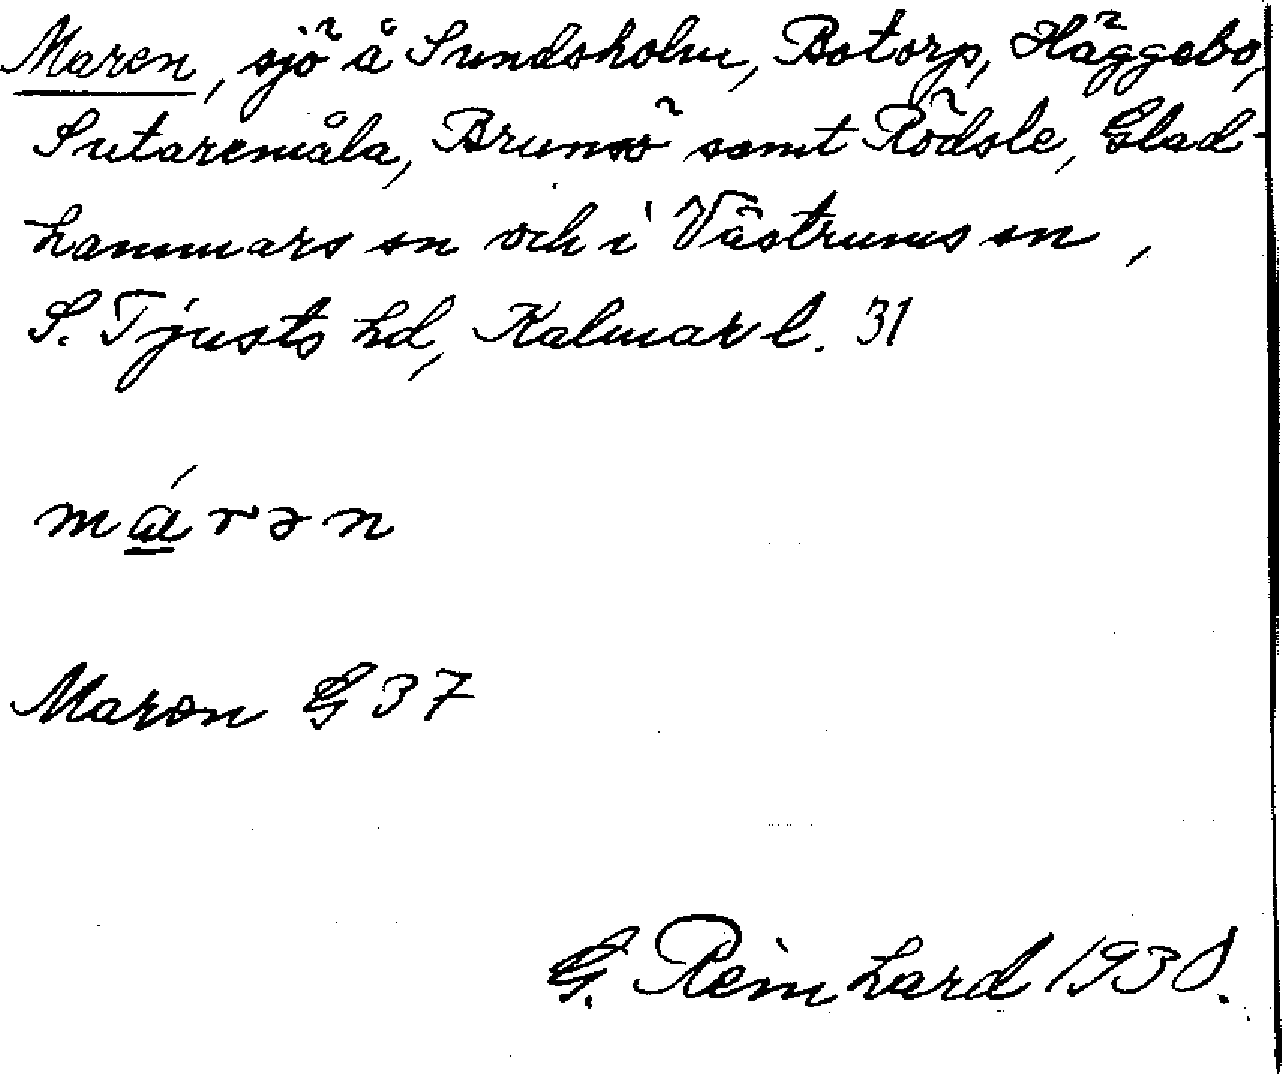 Maren, sjö å Sundsholm, Botorp, Häggebo,
Sutaremåla, Brunsö samt Rödsle, Glad-
hammars sn och i Västrums sn,
S. Tjusts hd, Kalmar l. 31
má̱rən
Maren G 37
G. Reinhard 1938.